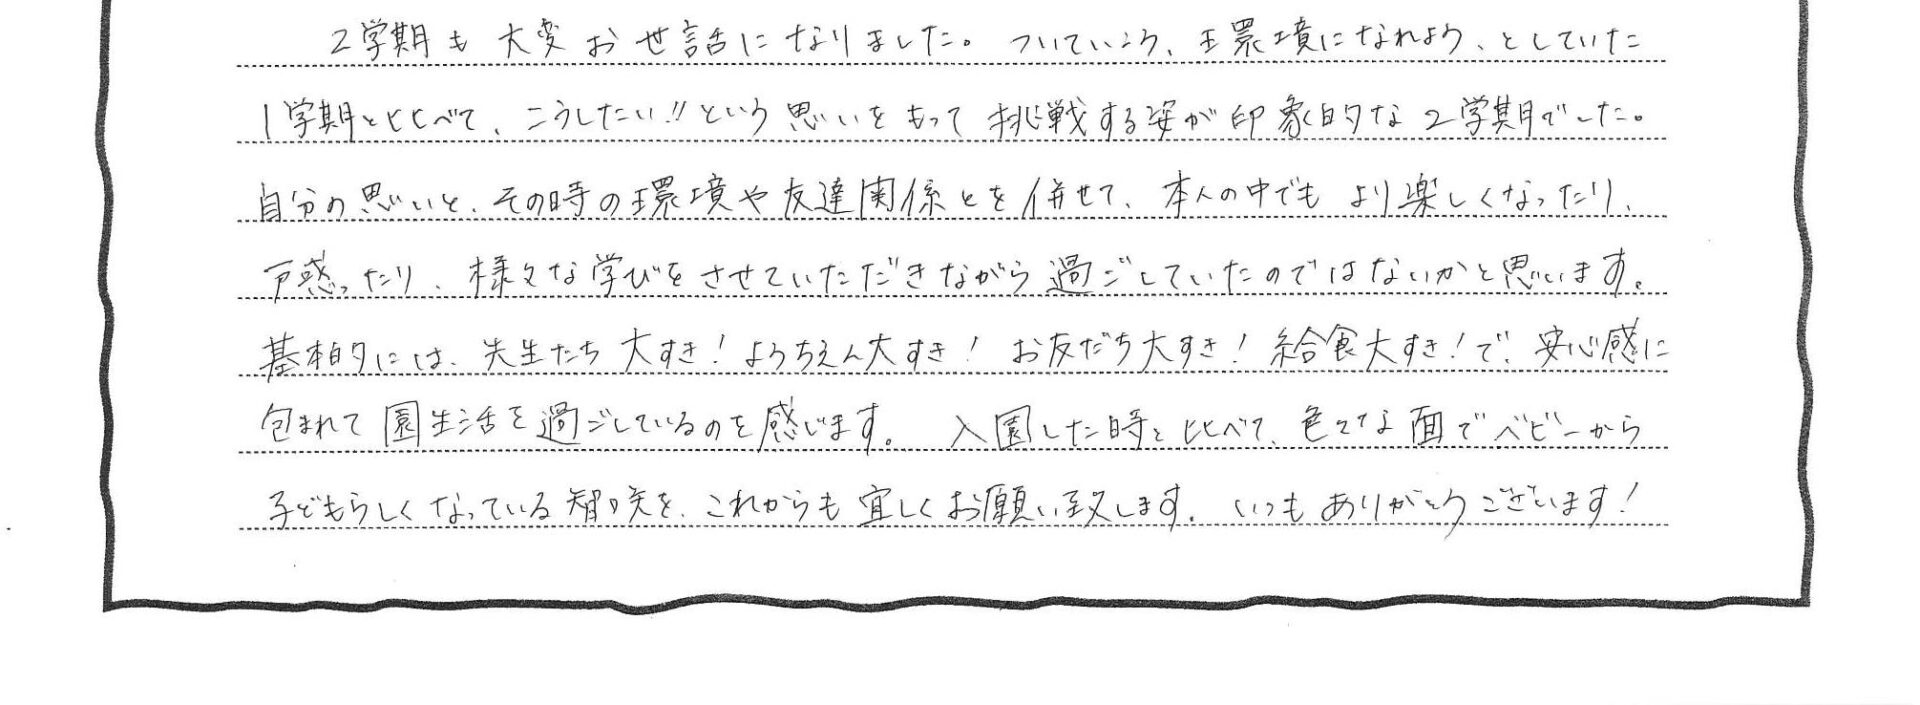 2学期も大変お世話になりました。ついていこう、環境になれよう、としていた
1学期と比べて、こうしたい!!という思いをもって挑戦する姿が印象的な2学期でした。
自分の思いと、その時の環境や友達関係とを併せて、本人の中でもより楽しくなったり、
戸惑ったり、様々な学びをさせていただきながら過ごしていたのではないかと思います。
基本的には、先生たち大すき!ようちえん大すき!お友だち大すき!給食大すき!で、安心感に
包まれて園生活を過ごしているのを感じます。入園した時と比べて、色々な面でベビーから
子どもらしくなっている智咲を、これからも宜しくお願い致します。いつもありがとうございます!